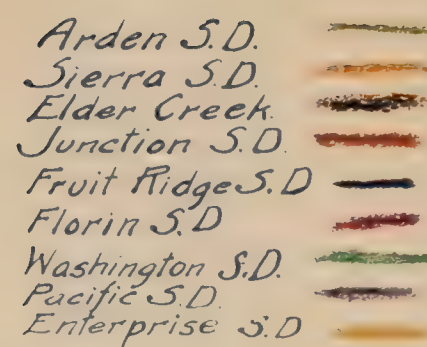 Arden S.D.
Sierra S.D.
Elder Creek.
Junction S.D.
Fruit Ridge S.D
Florin S.D
Washington S.D.
Pacific S.D.
Enterprise S.D